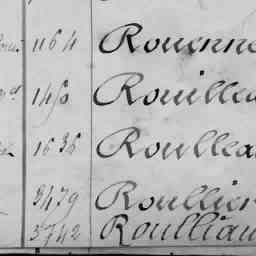 1164 Rouenne
1450 Rouillea
1636 Roullea
3479 Roullier
3742 Roulliau